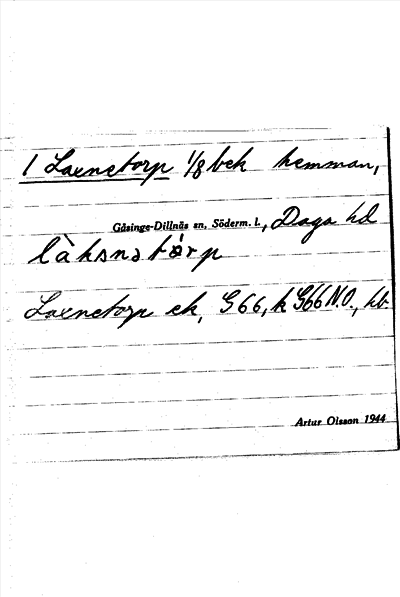 1 Laxnetorp 1/8 bek hemman,
Gåsinge-Dillnäs sn, Söderm. l., Daga hd
làksnətårp
Laxnetorp ek, G66, k G66 N.O., hb.
Artur Olsson 1944